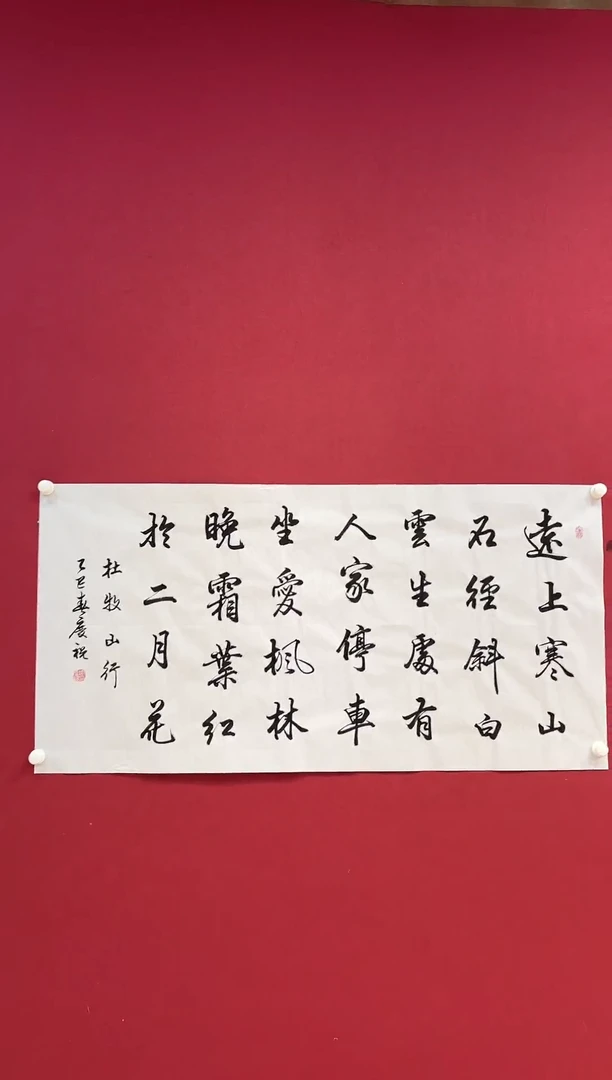 遠上寒山
石徑斜白
雲生處有
人家停車
坐愛楓林
晚霜葉红
於二月花
杜牧山行
乙巳春慶祝